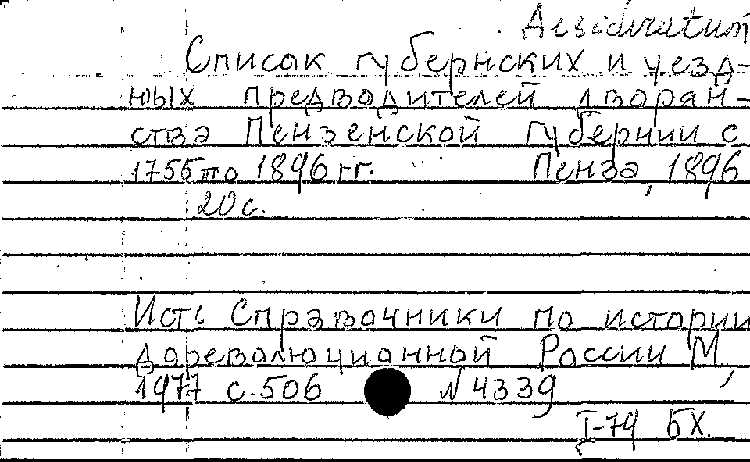 Desideratum
Список губернских и уезд-
ных предводителей дворян-
ства Пензенской губернии с
1755 по 1896 гг. Пенза, 1896
20 с.
Ист: Справочники по истории
дореволюционной России М,
1977 с. 506 N 4339
I-79 БХ.